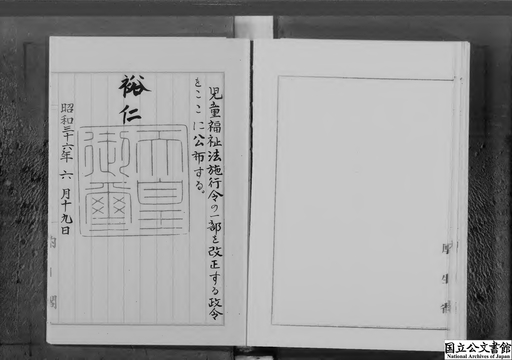 児童福祉法施行令の一部を改正する政令
をここに公布する。
裕仁
天皇
御璽
昭和三十六年 六 月十九日
内閣
厚生省
国立公文書館
National Archives of Japan